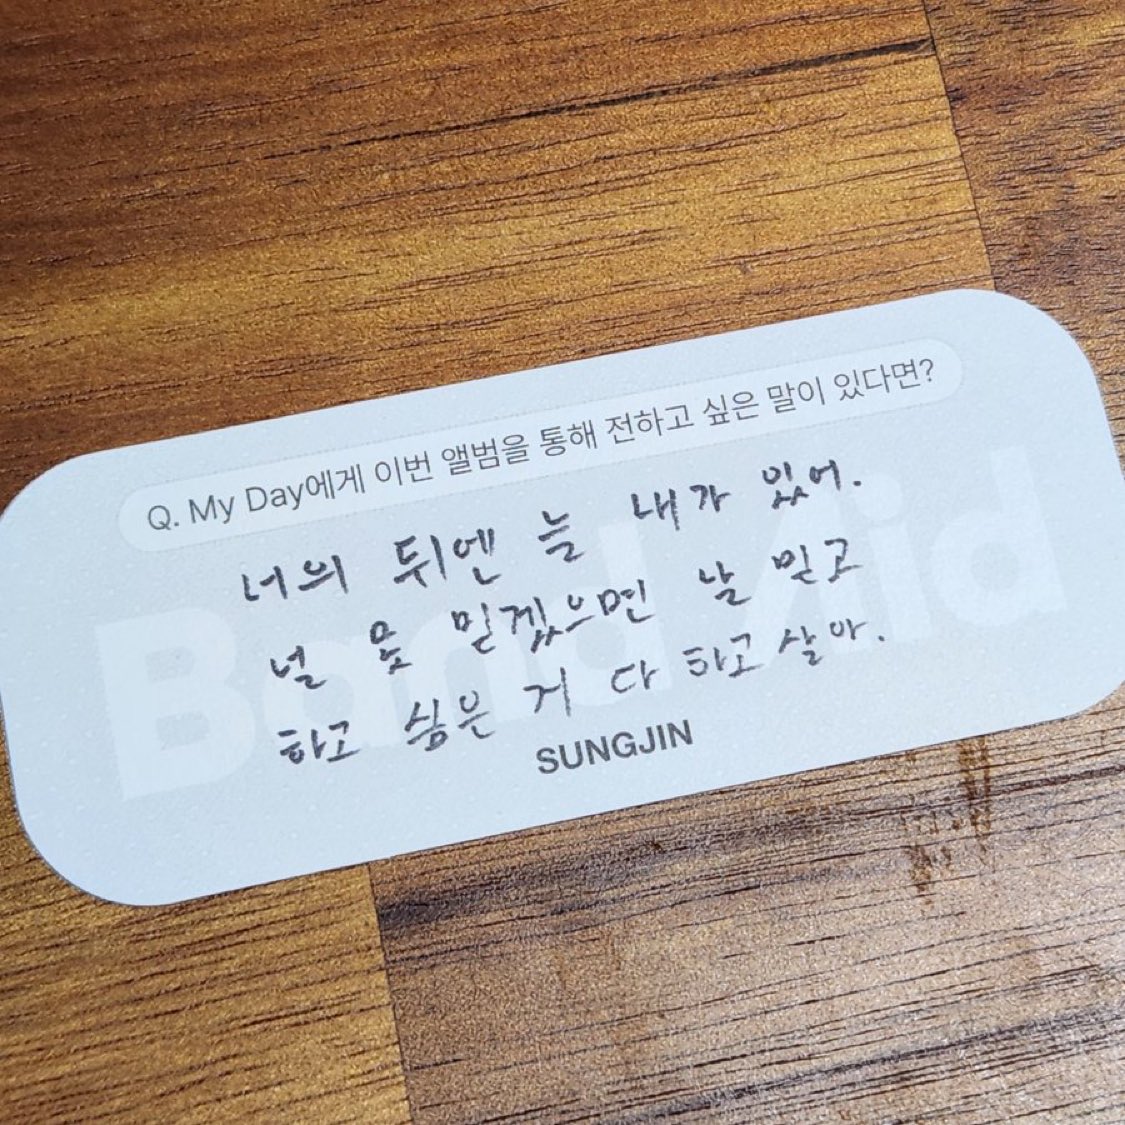 Q. My Day에게 이번 앨범을 통해 전하고 싶은 말이 있다면?
너의 뒤엔 늘 내가 있어.
널 못 믿겠으면 날 믿고
하고 싶은 거 다 하고 살아.
SUNGJIN
Band Aid